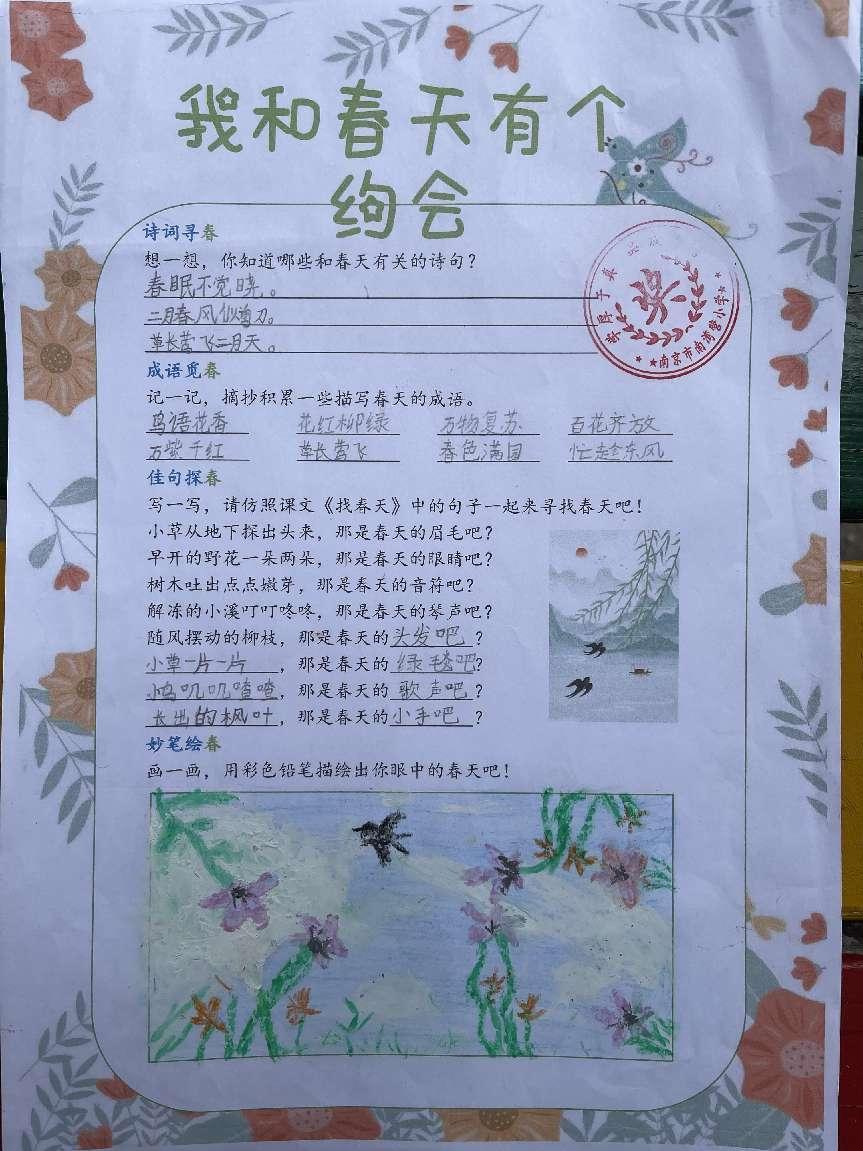 我和春天有个
绚会
诗词寻春
想一想，你知道哪些和春天有关的诗句？
春眠不觉晓。
二月春风似剪刀。
草长莺飞二月天。
南京市南湾营小学
成语觅春
记一记，摘抄积累一些描写春天的成语。
鸟语花香 花红柳绿 万物复苏 百花齐放
万紫千红 草长莺飞 春色满园 忙趁东风
佳句探春
写一写，请仿照课文《找春天》中的句子一起来寻找春天吧！
小草从地下探出头来，那是春天的眉毛吧？
早开的野花一朵两朵，那是春天的眼睛吧？
树木吐出点点嫩芽，那是春天的音符吧？
解冻的小溪叮叮咚咚，那是春天的琴声吧？
随风摆动的柳枝，那是春天的头发吧？
小草一片一片，那是春天的绿毯吧？
小鸟叽叽喳喳，那是春天的歌声吧？
长出的枫叶，那是春天的小手吧？
妙笔绘春
画一画，用彩色铅笔描绘出你眼中的春天吧！